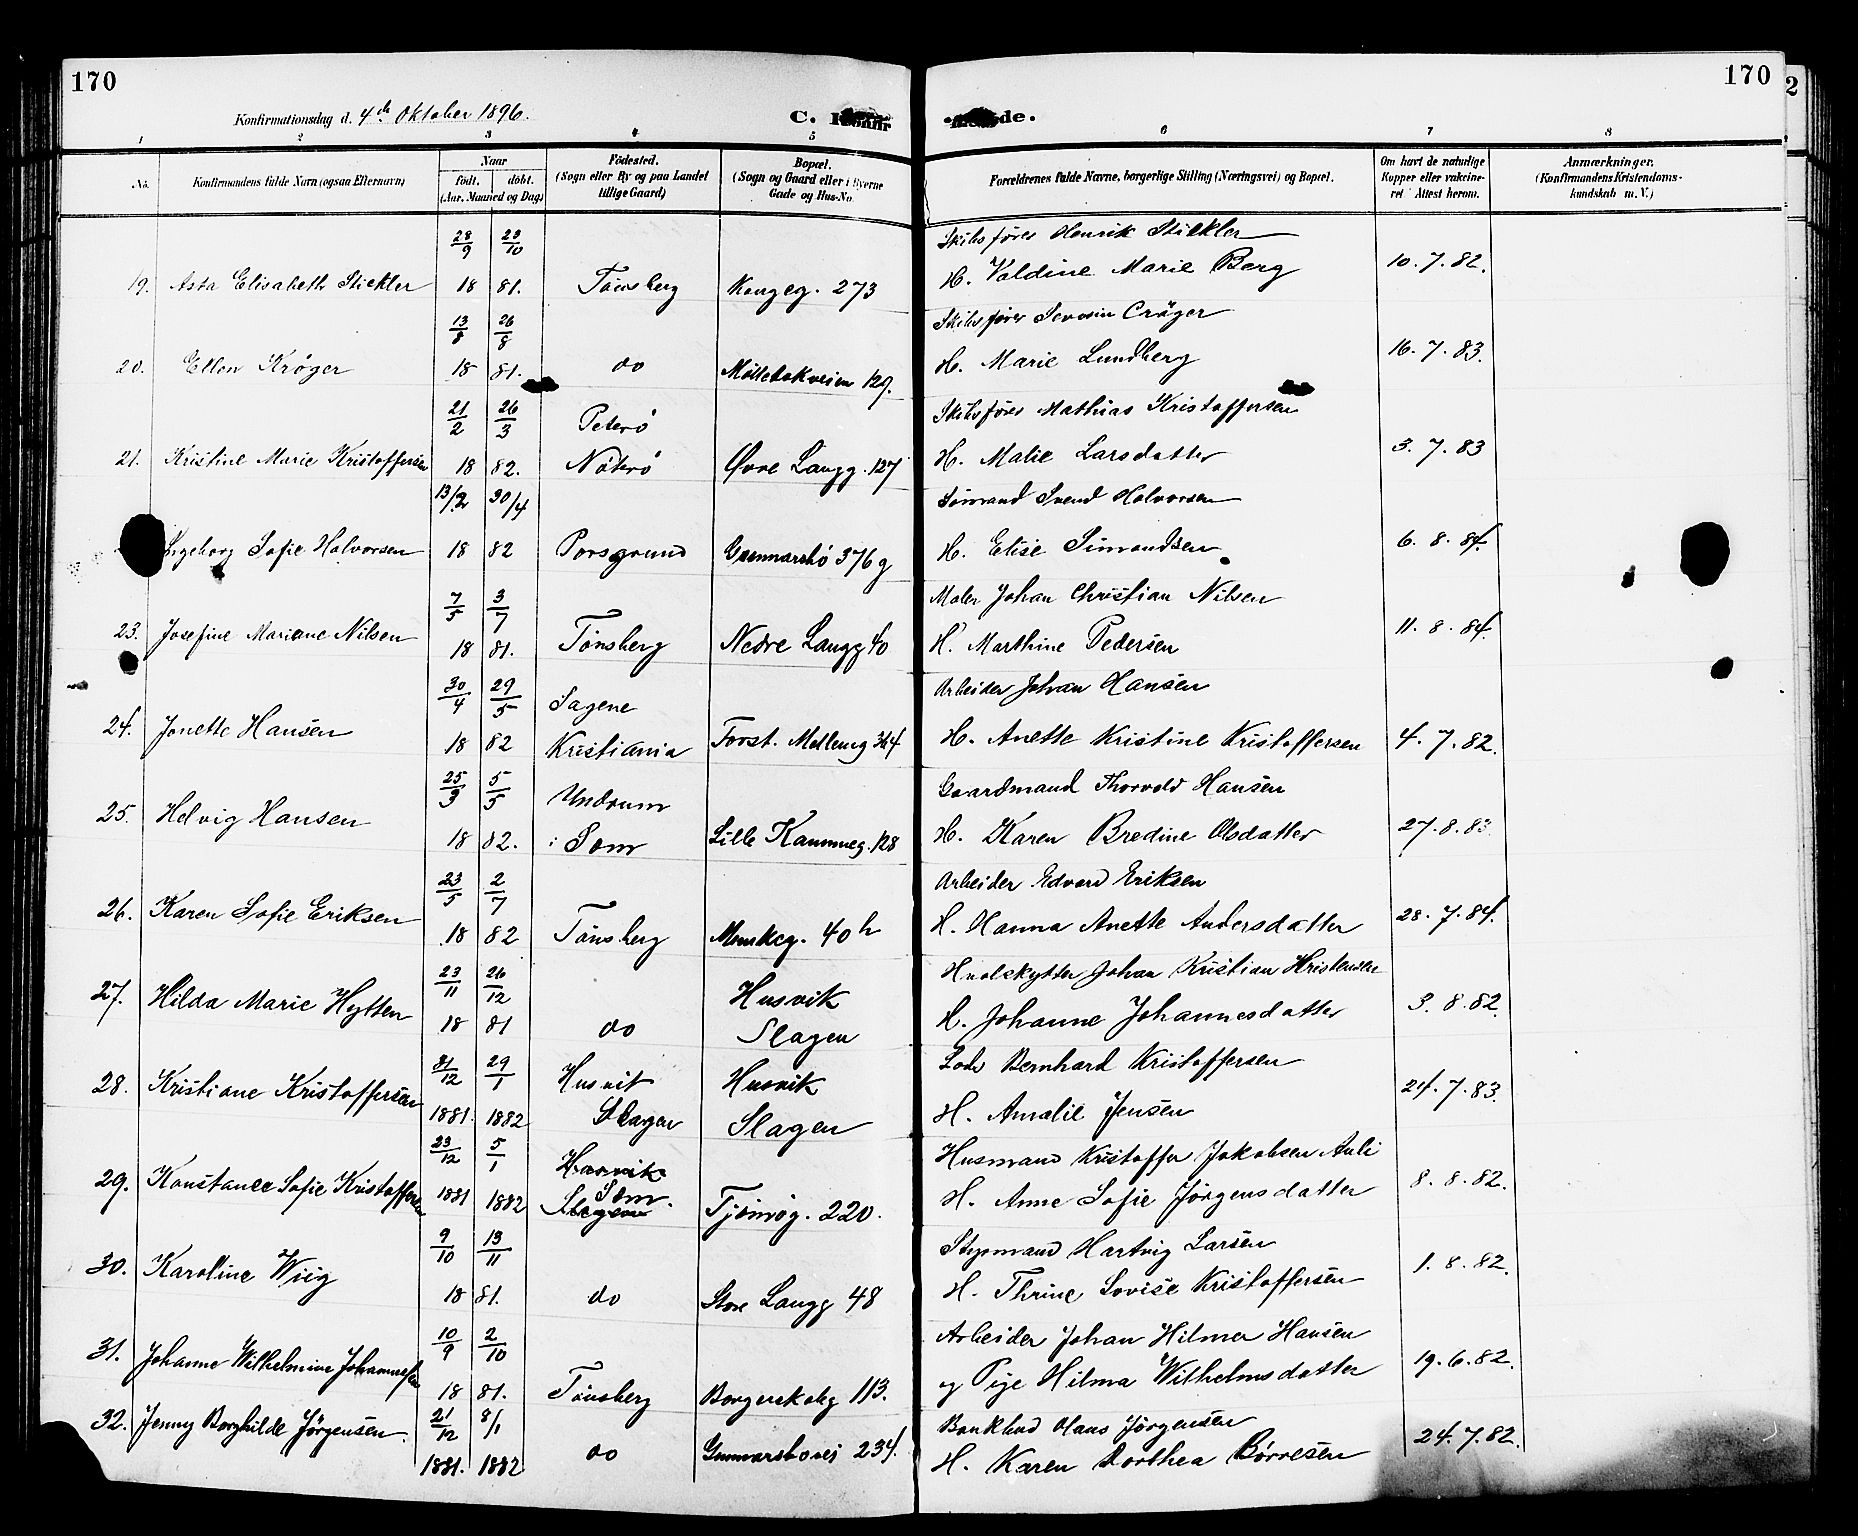 170
170
Konfirmationsdag d. 4de Oktober 1896.
C. Konfir
de.
1 2 3 4 5 6 7 8
No. Konfirmandens fulde Navn (ogsaa Efternavn) Naar født. døbt. (Aar, Maaned og Dag) Fødested. (Sogn eller By og paa Landet tillige Gaard) Bopæl. (Sogn og Gaard eller i Byerne Gade og Hus-No. Forældrenes fulde Navne, borgerlige Stilling (Næringsvei) og Bopæl. Om havt de naturlige Kopper eller vaccineret Attest herom. Anmærkninger. (Konfirmandens Kristendomskundskab m. V.)
28/9 23/10 Skibsfører Henrik Stickler
19. Asta Elisabeth Stickler 18 81. Tønsberg Kongeg. 273 H. Valdine Marie Berg 10.7.82.
13/8 26/8 Skibsfører Severin Crøger
20. Ellen Krøger 18 81. do Møllebakveien 129. H. Marie Lundberg 16.7.83.
21/2 26/3 Peterø Skibsfører Mathias Kristoffersen
21. Kristine Marie Kristoffersen 18 82. Nøterø Øvre Langg. 127 H. Malie Larsdatter 3.7.83
13/2 30/4 Sømand Svend Halvorsen
Ingeborg Sofie Halvorsen 18 82 Porsgrund Gunnarsbø 376 g H. Elise Simondsen 6.8.84.
7/5 3/7 Maler Johan Christian Nilsen
23. Josefine Mariane Nilsen 18 81. Tønsberg Nedre Langg 40 H. Marthine Pedersen 11.8.84.
30/4 29/5 Sagene Arbeider Johan Hansen
24. Jonette Hansen 18 82 Kristiania Forst. Mellemg 364 H. Anette Kristine Kristoffersen 4.7.82.
25/3 5/5 Undrum Gaardmand Thorvald Hansen
25. Helvig Hansen 18 82. i Sem Lille Kammeg. 128 H. Karen Bredine Olsdatter 27.8.83.
23/5 2/7 Arbeider Edvard Eriksen
26. Karen Sofie Eriksen 18 82 Tønsberg Munkeg. 40 h H. Hanna Anette Andersdatter 28.7.84.
23/11 26/12 Husvik Hvalskytter Johan Kristian Kristensen
27. Hilda Marie Hytten 18 81 do Slagen H. Johanne Johannesdatter 3.8.82.
31/12 29/1 Husvik Husvik Lods Bernhard Kristoffersen
28. Kristiane Kristoffersen 1881. 1882 Slagen Slagen H. Amalie Jensen 24.7.83.
23/12 5/1 Husvik Husmand Kristoffer Jakobsen Auli
29. Konstance Sofie Kristoffersen 1881 1882 Slagen Sem. Tjømøg. 220. H. Anne Sofie Jørgensdatter 8.8.82.
9/10 13/11 Styrmand Hartvig Larsen
30. Karoline Wiig 18 81. do Store Langg 48 H. Thrine Lovise Kristoffersen 1.8.82.
10/9 2/10 Arbeider Johan Hilmer Hansen
31. Johanne Wilhelmine Johannessen 18 81. Tønsberg Borgerskolg 113. og Pige Hilma Wilhelmsdatter 19.6.82.
32. Jenny Borghilde Jørgensen. 21/12 8/1 Bankbud Hans Jørgensen
1881. 1882 do Gunnarsbovei 234. H. Karen Dorthea Børresen 24.7.82.